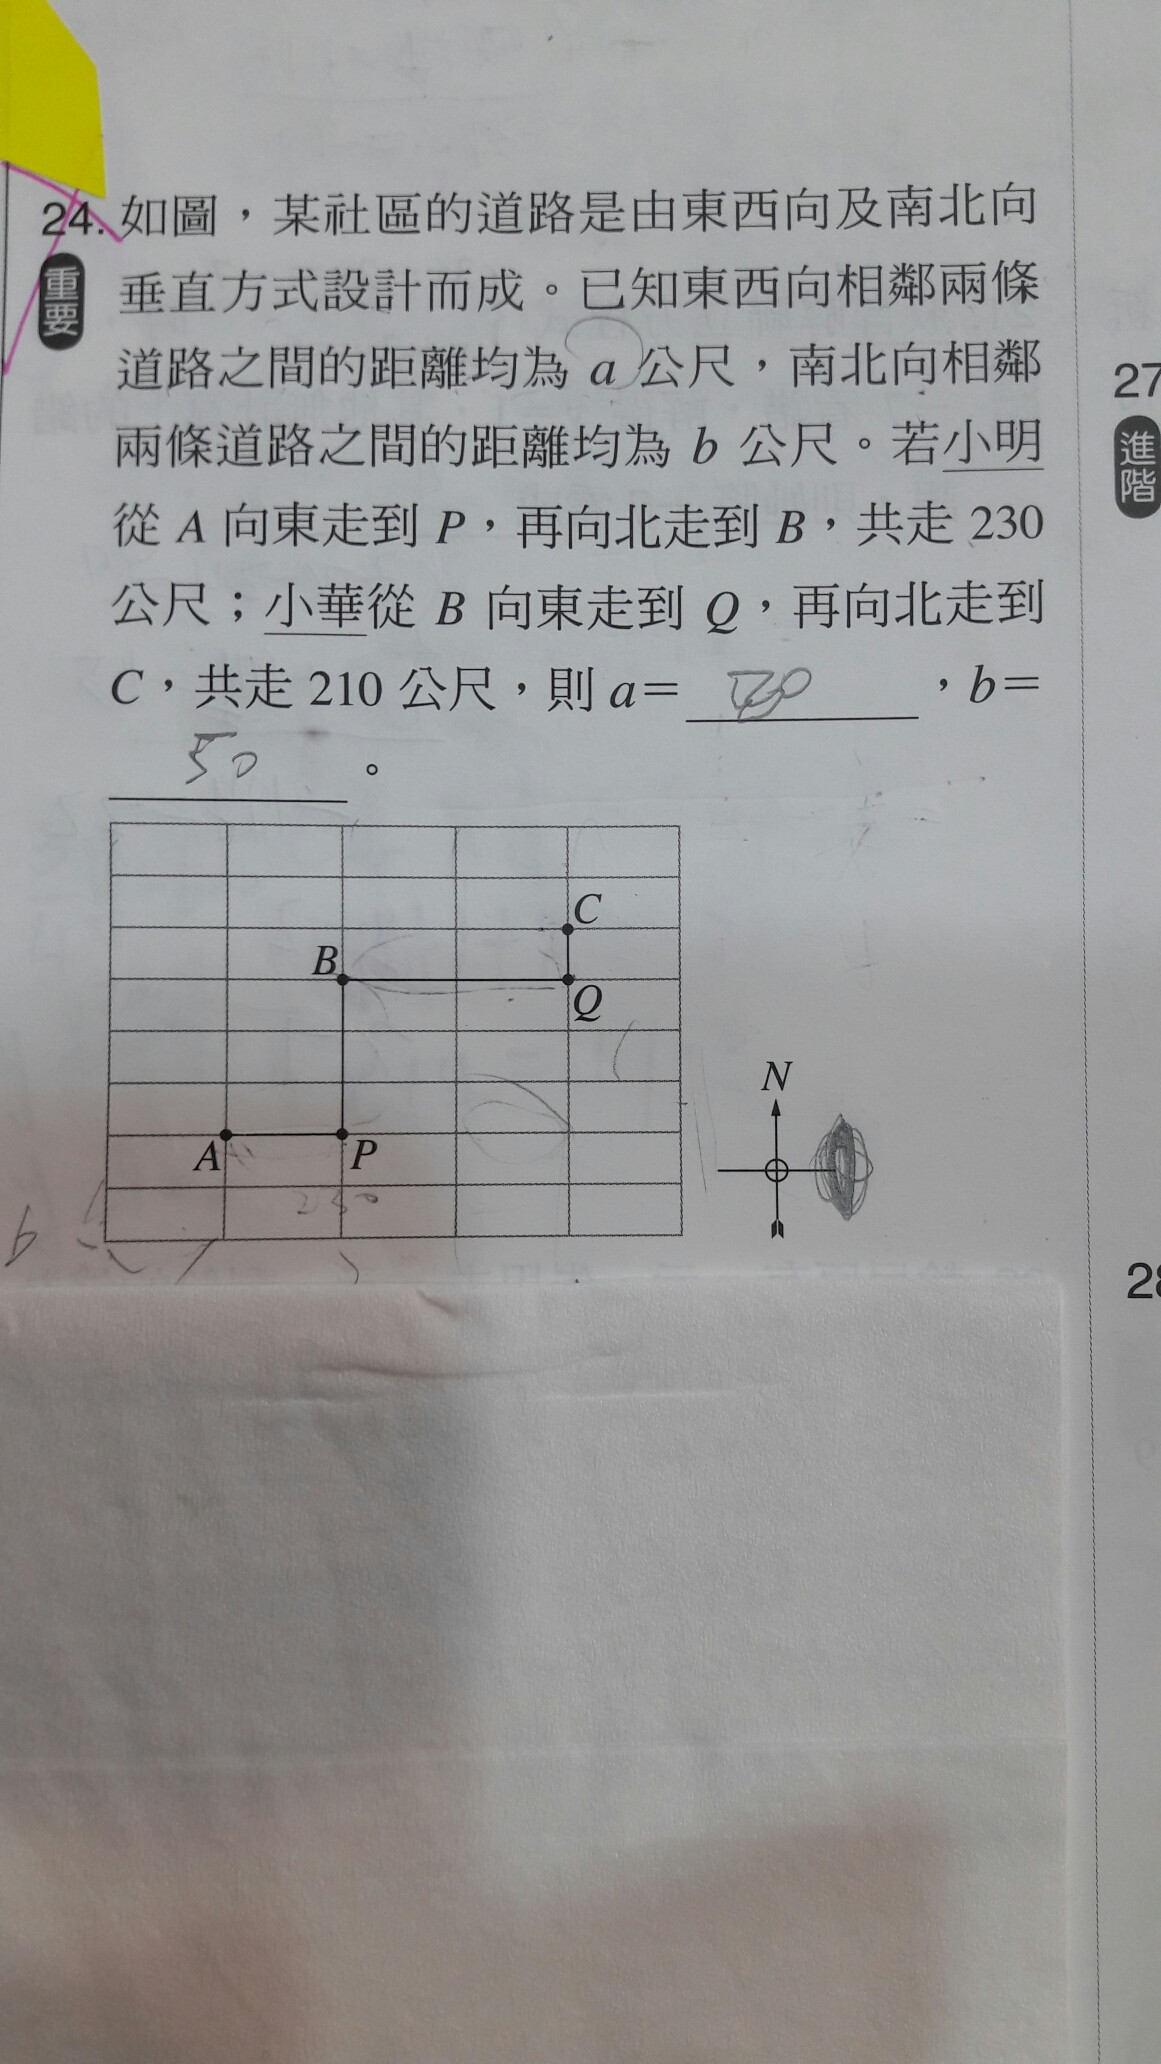 24. 如圖，某社區的道路是由東西向及南北向
重要
垂直方式設計而成。已知東西向相鄰兩條
道路之間的距離均為 a 公尺，南北向相鄰
兩條道路之間的距離均為 b 公尺。若小明
從 A 向東走到 P，再向北走到 B，共走 230
公尺；小華從 B 向東走到 Q，再向北走到
C，共走 210 公尺，則 a＝ ，b＝
50 。
C
B
Q
N
A P
230
b
27
進階
28